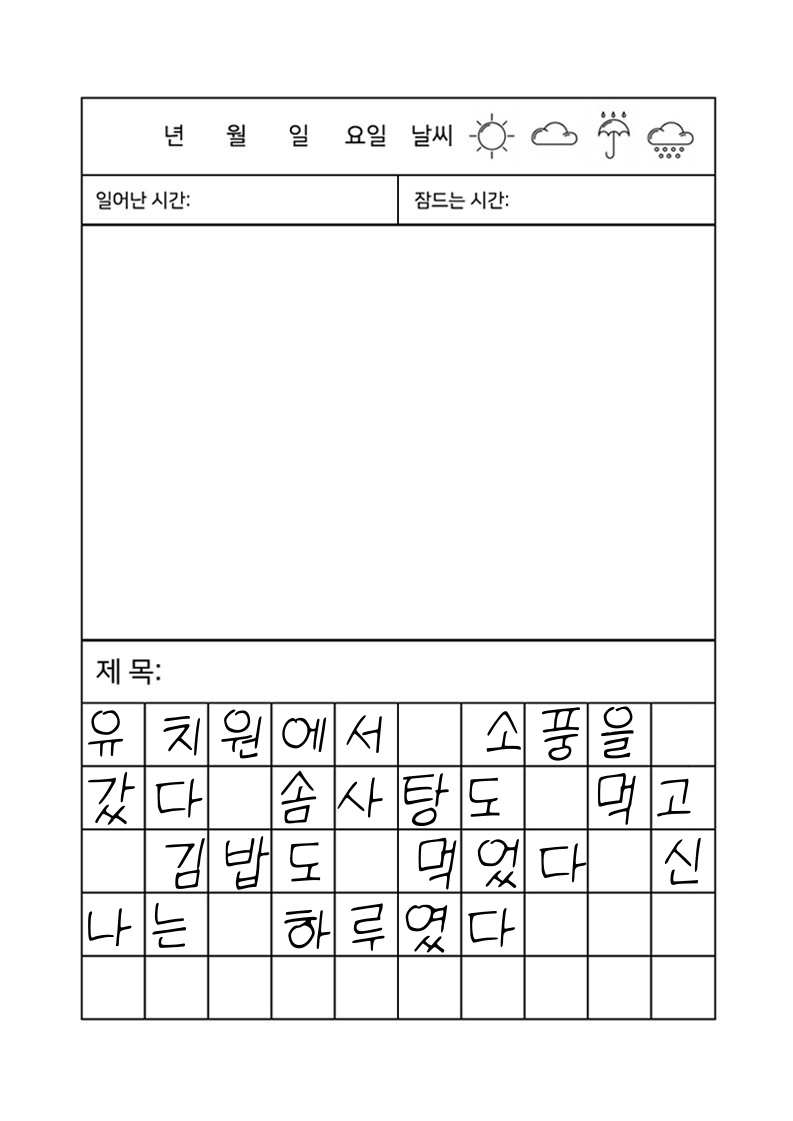 년 월 일 요일 날씨
일어난 시간: 잠드는 시간:
제 목:
유치원에서 소풍을
갔다 솜사탕도 먹고
김밥도 먹었다 신
나는 하루였다